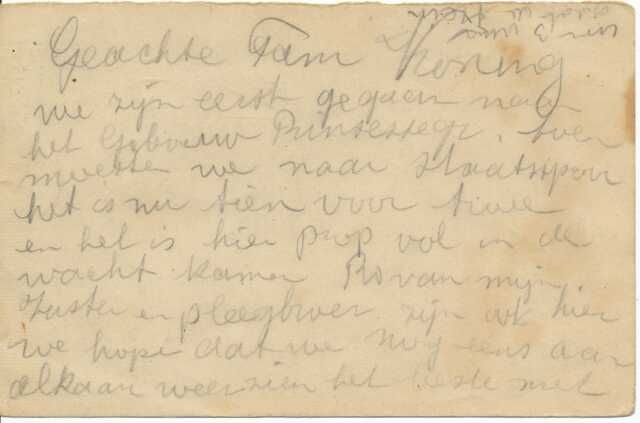 om 3 uur
gaat de trein
Geachte Fam Koning
we zijn eerst gegaan naar
het Gebouw Prinsessegr. toen
moesten we naar staatsspoor
het is nu tien voor twee
en het is hier prop vol in de
wacht kamer Ro van mijn
Zuster en pleegbroer zijn ook hier
we hope dat we nog eens aan
elkaar weer zien het beste met